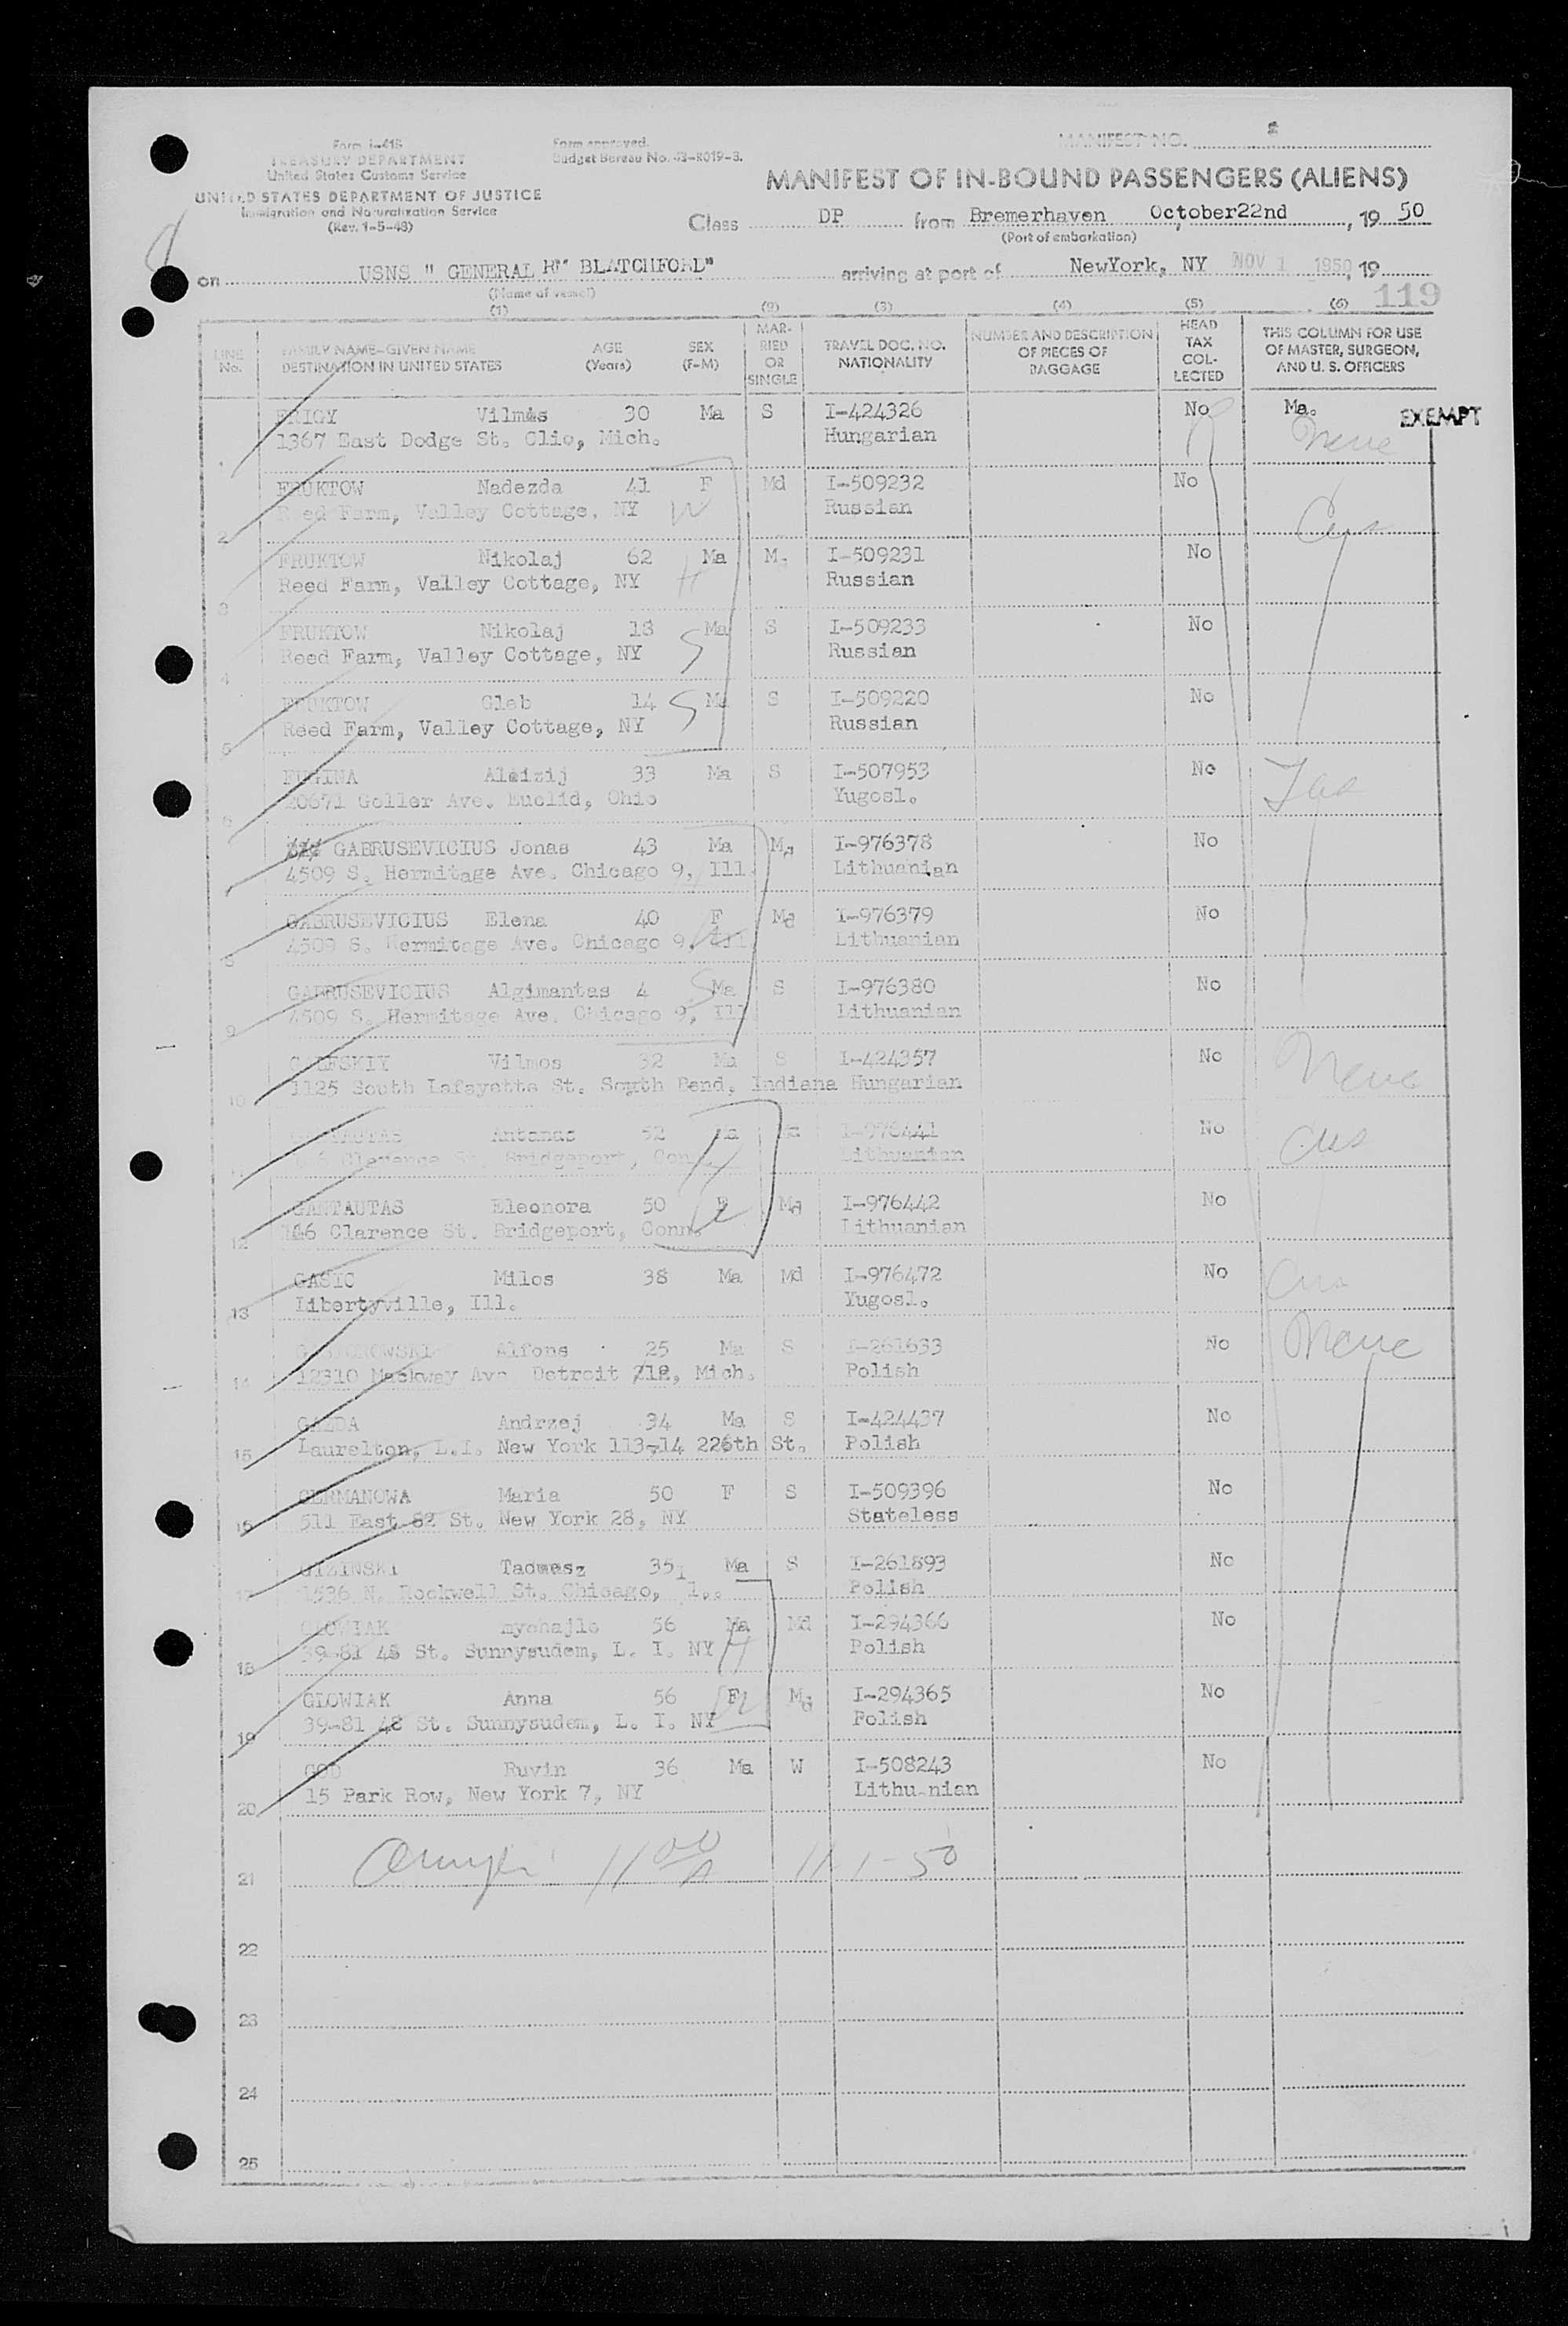 Form I-415
TREASURY DEPARTMENT
United States Customs Service
UNITED STATES DEPARTMENT OF JUSTICE
Immigration and Naturalization Service
(Rev. 1-5-48)
Form approved.
Budget Bureau No. 43-R019-3.
MANIFEST NO.
MANIFEST OF IN-BOUND PASSENGERS (ALIENS)
Class DP from Bremerhaven October22nd, 19 50
(Port of embarkation)
on USNS " GENERAL BLATCHFORD" arriving at port of NewYork, NY NOV 1 1950, 19
(Name of vessel)
119
(1) (2) (3) (4) (5) (6)
LINE No. FAMILY NAME-GIVEN NAME DESTINATION IN UNITED STATES AGE (Years) SEX (F-M) MARRIED OR SINGLE TRAVEL DOC. NO. NATIONALITY NUMBER AND DESCRIPTION OF PIECES OF BAGGAGE HEAD TAX COLLECTED THIS COLUMN FOR USE OF MASTER, SURGEON, AND U. S. OFFICERS
FRIGY Vilmos 30 Ma S I-424326 No Ma. EXEMPT
1367 East Dodge St. Clio, Mich. Hungarian
FRUKTOW Nadezda 41 F Md I-509232 No
2 Reed Farm, Valley Cottage, NY W Russian
FRUKTOW Nikolaj 62 Ma M I-509231 No
3 Reed Farm, Valley Cottage, NY H Russian
FRUKTOW Nikolaj 18 Ma S I-509233 No
4 Reed Farm, Valley Cottage, NY S Russian
FRUKTOW Gleb 14 S Ma S I-509220 No
5 Reed Farm, Valley Cottage, NY Russian
FUGINA Aloizij 33 Ma S I-507953 No
6 20671 Goller Ave. Euclid, Ohio Yugosl.
GABRUSEVICIUS Jonas 43 Ma Md I-976378 No
7 4509 S. Hermitage Ave. Chicago 9, Ill. Lithuanian
GABRUSEVICIUS Elena 40 F Md I-976379 No
8 4509 S. Hermitage Ave. Chicago 9, Ill Lithuanian
GABRUSEVICIUS Algimantas 4 S Ma S I-976380 No
9 4509 S. Hermitage Ave. Chicago 9, Ill Lithuanian
Vilmos 32 Ma S I-424357 No
10 1125 South Lafayette St. South Bend, Indiana Hungarian
GANTAUTAS Antanas 52 Ma I-976441 No
Clarence St. Bridgeport, Conn. H Lithuanian
GANTAUTAS Eleonora 50 F Md I-976442 No
12 Clarence St. Bridgeport, Conn. Lithuanian
GASIC Milos 38 Ma Md I-976472 No
13 Libertyville, Ill. Yugosl.
Alfons 25 Ma S I-261633 No
14 12310 Mackway Ave Detroit 212, Mich. Polish
GAZDA Andrzej 34 Ma S I-424437 No
15 Laurelton, L.I. New York 113-14 226th St. Polish
GERMANOWA Maria 50 F S I-509396 No
16 511 East 82 St. New York 28, NY Stateless
GIZINSKI Tadeusz 35 Ma S I-261893 No
17 1536 N. Rockwell St. Chicago, Polish
GLOWIAK mychajlo 56 Ma Md I-294366 No
18 39-81 48 St. Sunnysudem, L. I. NY H Polish
GLOWIAK Anna 56 F Md I-294365 No
19 39-81 48 St. Sunnysudem, L. I. NY W Polish
GOD Ruvin 36 Ma W I-508243 No
20 15 Park Row, New York 7, NY Lithu nian
21 11 00 A 11-1-50
22
23
24
25